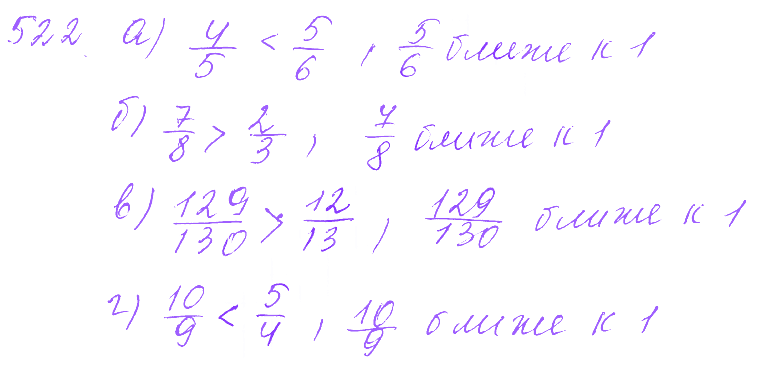 522. а) 4/5 < 5/6 , 5/6 ближе к 1
б) 7/8 > 2/3 , 7/8 ближе к 1
в) 129/130 > 12/13 , 129/130 ближе к 1
г) 10/9 < 5/4 , 10/9 ближе к 1